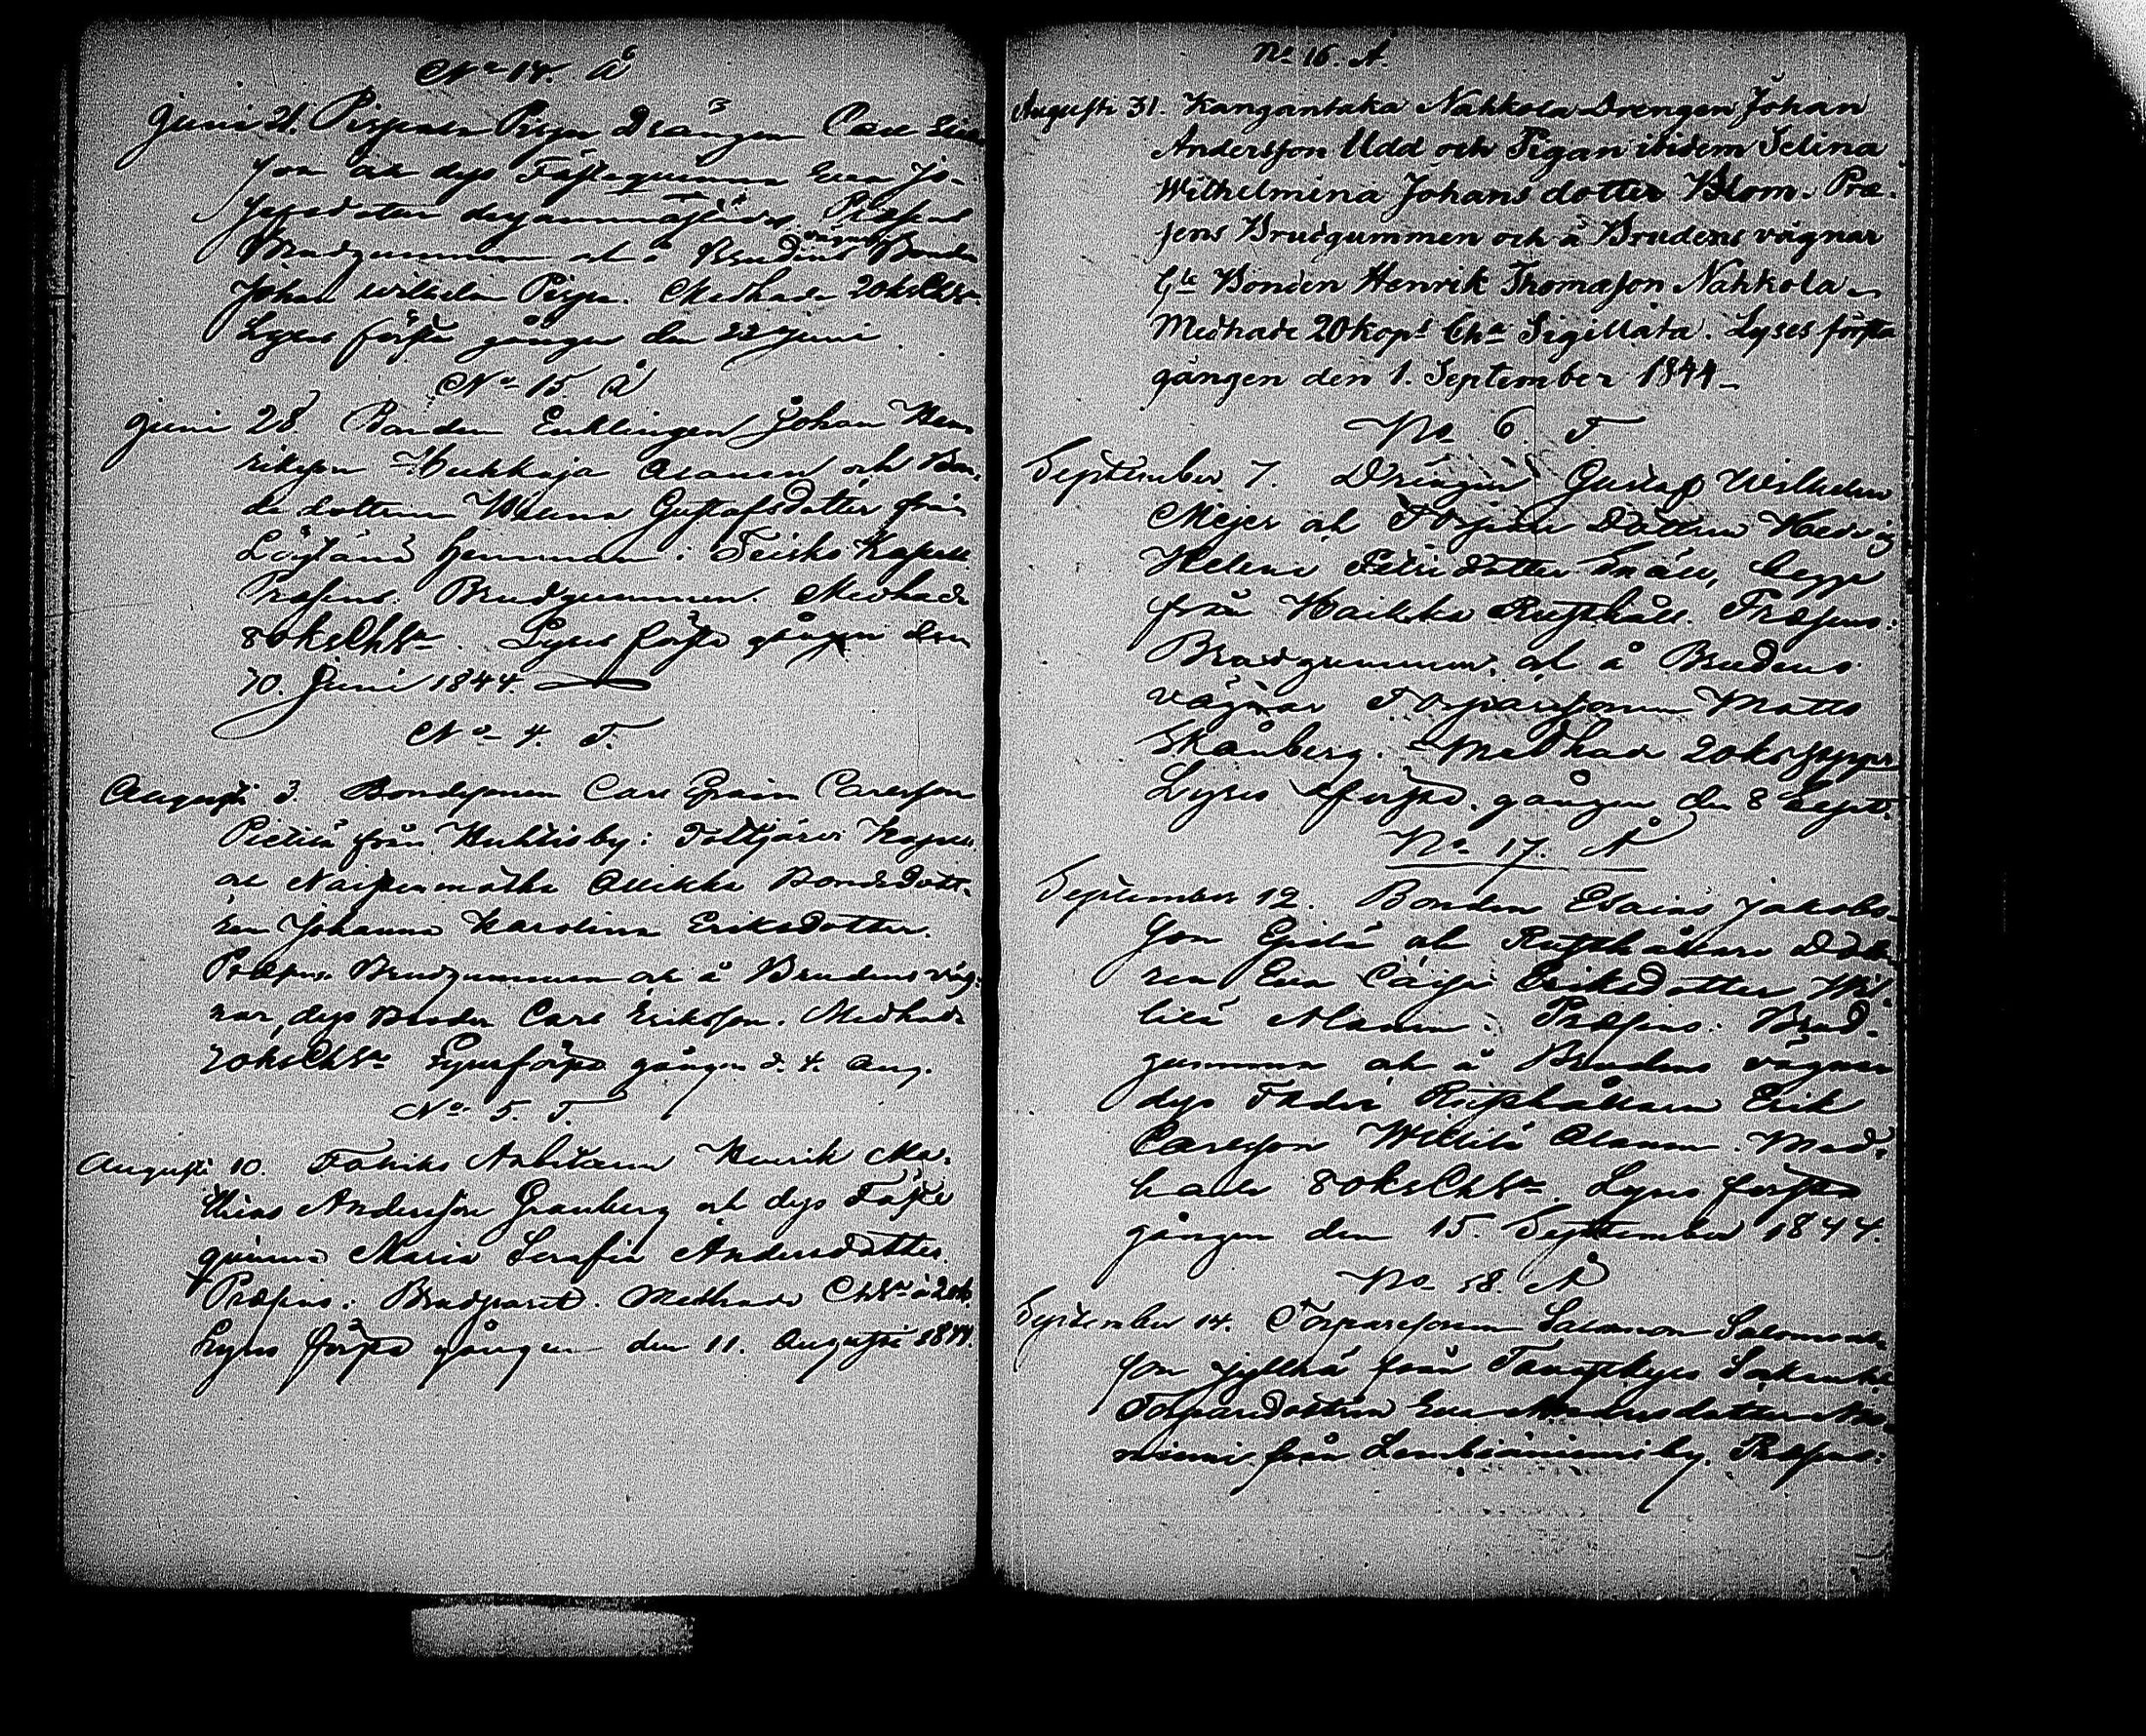 No 14. Å
Juni 21. Pispala Pispa Drängen Carl Eriks
son och dess Fästequinna Eva Jo-
sefsdotter dersammastädes. Præsens
Brudgummen och å Brudens vägnar Bonden
Johan Wilhelm Pispa. Medhade 20 ks ChSta
Lyses första gången den 22 Juni
No 15. Å
Juni 28. Bonden Enklingen Johan Hen
riksson Alanen och Bon-
de dottren Helena Gustafsdotter från
hemman i Teisko Kapell.
Præsens. Brudgummen. Medhade
80 ks ChSta. Lyses första gången den
30. Juni 1844.
No 4. T.
Augusti 3. Bondesonen Carl Carlsson
Pietilä från by i Kapell
och Naistenmatka Bondedott-
ren Johanna Karolina Eriksdotter.
Præsens. Brudgummen och å Brudens väg-
nar, dess Broder Carl Eriksson. Medhade
20 ks ChSta Lyses första gången d. 4. Aug.
No 5. T.
Augusti 10. Fabriks Arbetaren Henrik Ma-
thias Andersson Granberg och dess Fäste
quinna Maria Serafia Andersdotter.
Præsens: Brudparet. Medhade ChSta à 20 k.
Lyses första gången den 11. Augusti 1844.
No 16. Å.
Augusti 31. Kangantaka Nahkola Drengen Johan
Andersson Udd och Pigan ibidem Selina
Wilhelmina Johansdotter Blom. Præ-
sens Brudgummen och å Brudens vägnar
Gle Bonden Henrik Thomasson Nahkola
Medhade 20 kops Cha Sigillata. Lyses första
gången den 1. September 1844
No 6. T
September 7. Drengen Gustaf Wilhelm
Mejer och Torpare Dottren Hedvig
Helena Petri dotter Snäll, begge
från Haikka Rusthåll. Præsens:
Brudgummen, och å Brudens
vägnar Torparesonen Matts
Skånberg. Medhade 20 ks papper
Lyses första gången den 8 Sept.
No 17. Å
September 12. Bonden Esaias Jakobs-
son och Rusthållare Dott-
ren Eva Caisa Eriksdotter Wil-
lilä Alanen. Præsens: Brud-
gummen och å Brudens vägnar
dess Fader Rusthållaren Erik
Carlsson Willilä Alanen. Med-
hade 80 ks ChSta. Lyses första
gången den 15. September 1844.
No 18. Å
September 14. Torparesonen Salomon Salomons-
son Jyllhä från
Torparedottren Eva Andersdotter
från Lembiäniemi by. Præsens: